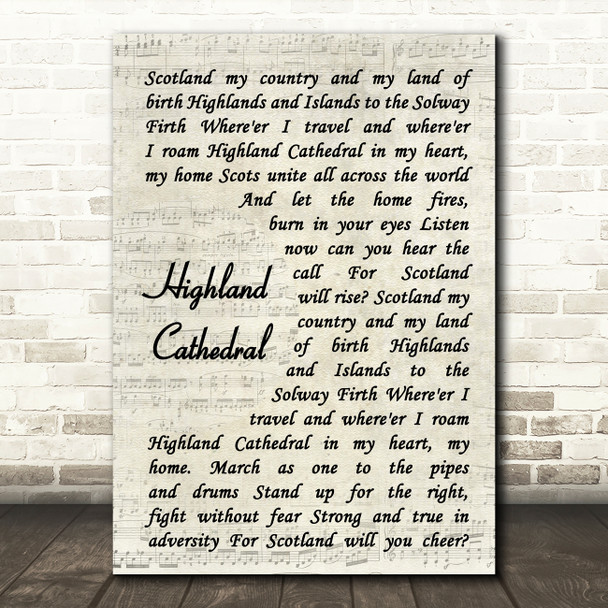 Scotland my country and my land of
birth Highlands and Islands to the Solway
Firth Where'er I travel and where'er
I roam Highland Cathedral in my heart,
my home Scots unite all across the world
And let the home fires,
burn in your eyes Listen
now can you hear the
call For Scotland
will rise? Scotland my
country and my land
of birth Highlands
and Islands to the
Solway Firth Where'er I
travel and where'er I roam
Highland Cathedral in my heart, my
home. March as one to the pipes
and drums Stand up for the right,
fight without fear Strong and true in
adversity For Scotland will you cheer?
Highland
Cathedral